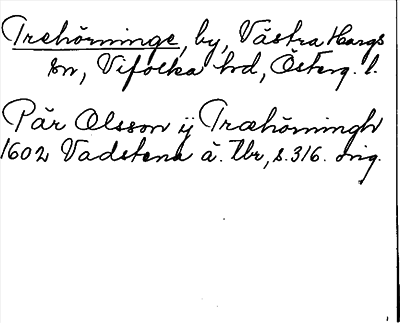 Trehörninge, by, Västra Hargs
sn, Vifolka hd, Österg. l.
Pär Olsson ij Træhörningh
1602 Vadstena ä. Jbr, s. 316. orig.